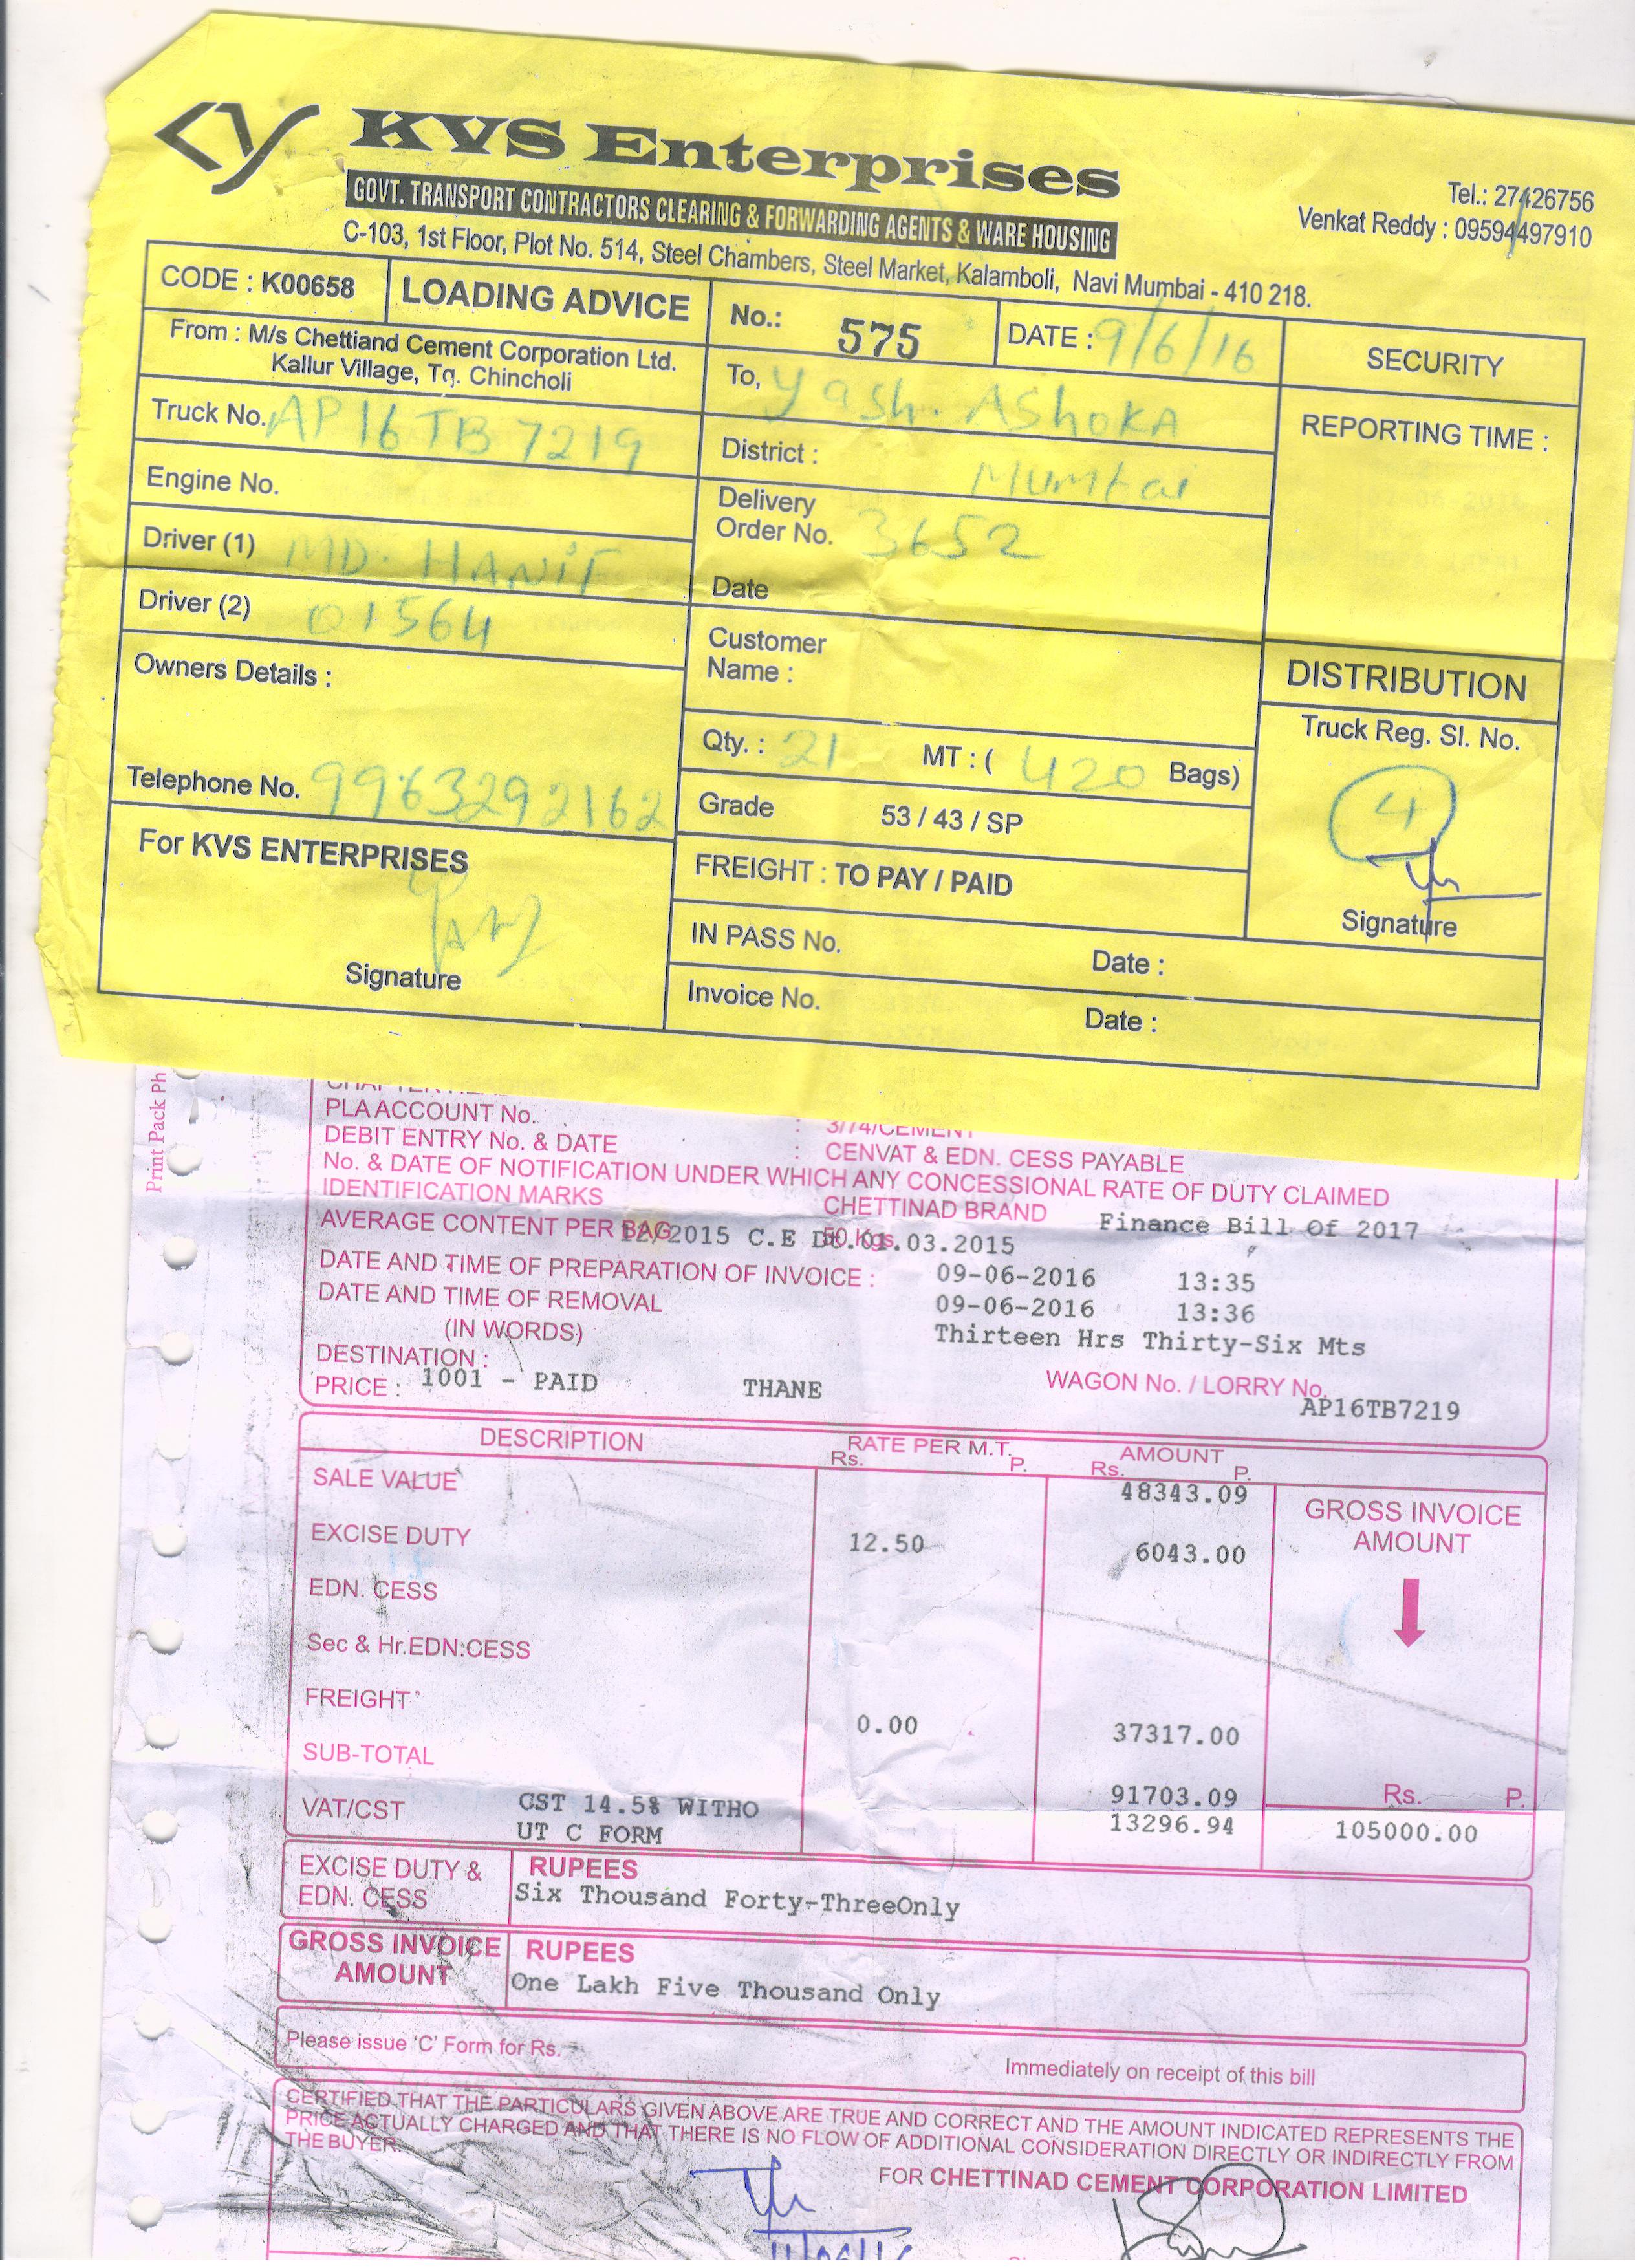 KVS Enterprises
GOVT. TRANSPORT CONTRACTORS CLEARING & FORWARDING AGENTS & WARE HOUSING
C-103, 1st Floor, Plot No. 514, Steel Chambers, Steel Market, Kalamboli, Navi Mumbai - 410 218.
Tel.: 27426756
Venkat Reddy : 09594497910
CODE : K00658 LOADING ADVICE No.: 575 DATE : 9/6/16 SECURITY
From : M/s Chettiand Cement Corporation Ltd.
Kallur Village, Tq. Chincholi
To, Yash. ASHOKA
REPORTING TIME :
Truck No. AP16TB7219
District : Mumbai
Engine No.
Delivery
Order No. 3652
Date
Driver (1) MD. HANIF
Driver (2) 01564
Customer
Name :
Owners Details :
DISTRIBUTION
Truck Reg. Sl. No.
4
Signature
Qty. : 21 MT : ( 420 Bags)
Telephone No. 9963292162
Grade 53 / 43 / SP
For KVS ENTERPRISES
Signature
FREIGHT : TO PAY / PAID
IN PASS No. Date :
Invoice No. Date :
Print Pack Ph
PLA ACCOUNT No. : 3/74/CEMENT
DEBIT ENTRY No. & DATE : CENVAT & EDN. CESS PAYABLE
No. & DATE OF NOTIFICATION UNDER WHICH ANY CONCESSIONAL RATE OF DUTY CLAIMED
IDENTIFICATION MARKS CHETTINAD BRAND Finance Bill Of 2017
AVERAGE CONTENT PER BAG 50 Kgs.
12/2015 C.E Dt.01.03.2015
DATE AND TIME OF PREPARATION OF INVOICE : 09-06-2016 13:35
DATE AND TIME OF REMOVAL 09-06-2016 13:36
(IN WORDS) Thirteen Hrs Thirty-Six Mts
DESTINATION :
PRICE : 1001 - PAID THANE WAGON No. / LORRY No.
AP16TB7219
DESCRIPTION RATE PER M.T. AMOUNT
Rs. P. Rs. P.
SALE VALUE 48343.09
GROSS INVOICE
AMOUNT
EXCISE DUTY 12.50 6043.00
EDN. CESS
Sec & Hr.EDN:CESS
FREIGHT 0.00 37317.00
SUB-TOTAL 91703.09 Rs. P.
VAT/CST CST 14.5% WITHO 13296.94 105000.00
UT C FORM
EXCISE DUTY & EDN. CESS
RUPEES
Six Thousand Forty-ThreeOnly
GROSS INVOICE AMOUNT
RUPEES
One Lakh Five Thousand Only
Please issue 'C' Form for Rs. Immediately on receipt of this bill
CERTIFIED THAT THE PARTICULARS GIVEN ABOVE ARE TRUE AND CORRECT AND THE AMOUNT INDICATED REPRESENTS THE
PRICE ACTUALLY CHARGED AND THAT THERE IS NO FLOW OF ADDITIONAL CONSIDERATION DIRECTLY OR INDIRECTLY FROM
THE BUYER.
FOR CHETTINAD CEMENT CORPORATION LIMITED